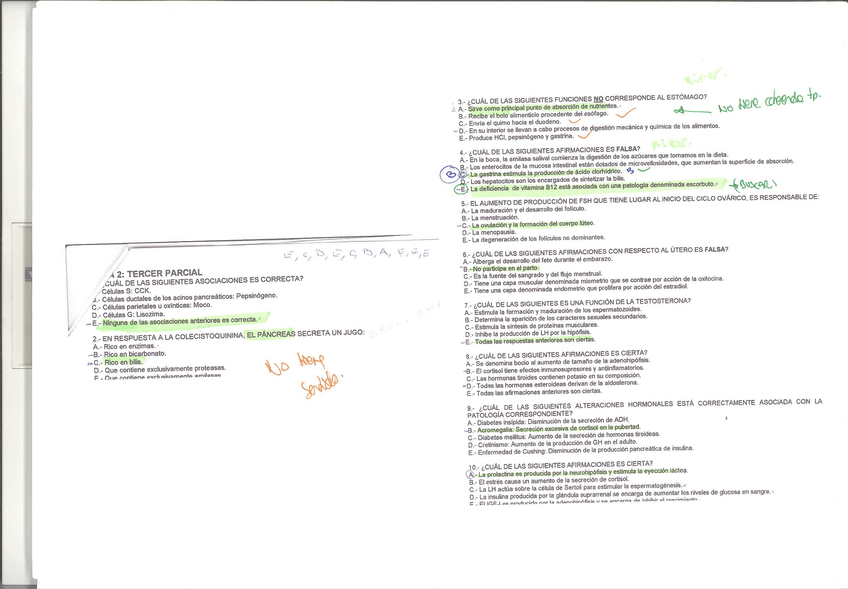 E, C, D, E, C, B, A, E, E, E
A 2: TERCER PARCIAL
¿CUÁL DE LAS SIGUIENTES ASOCIACIONES ES CORRECTA?
Células S: CCK.
B.- Células ductales de los acinos pancreáticos: Pepsinógeno.
C.- Células parietales u oxínticas: Moco.
D.- Células G: Lisozima.
E.- Ninguna de las asociaciones anteriores es correcta.
2.- EN RESPUESTA A LA COLECISTOQUININA, EL PÁNCREAS SECRETA UN JUGO:
A.- Rico en enzimas.
B.- Rico en bicarbonato.
C.- Rico en bilis.
D.- Que contiene exclusivamente proteasas.
E.- Que contiene exclusivamente amilasas
No tiene
sentido.
3.- ¿CUÁL DE LAS SIGUIENTES FUNCIONES NO CORRESPONDE AL ESTÓMAGO?
A.- Sirve como principal punto de absorción de nutrientes.
B.- Recibe el bolo alimenticio procedente del esófago.
C.- Envía el quimo hacia el duodeno.
D.- En su interior se llevan a cabo procesos de digestión mecánica y química de los alimentos.
E.- Produce HCl, pepsinógeno y gastrina.
4.- ¿CUÁL DE LAS SIGUIENTES AFIRMACIONES ES FALSA?
A.- En la boca, la amilasa salival comienza la digestión de los azúcares que tomamos en la dieta.
B.- Los enterocitos de la mucosa intestinal están dotados de microvellosidades, que aumentan la superficie de absorción.
C.- La gastrina estimula la producción de ácido clorhídrico.
D.- Los hepatocitos son los encargados de sintetizar la bilis.
E.- La deficiencia de vitamina B12 está asociada con una patología denominada escorbuto.
(BUSCAR)
5.- EL AUMENTO DE PRODUCCIÓN DE FSH QUE TIENE LUGAR AL INICIO DEL CICLO OVÁRICO, ES RESPONSABLE DE:
A.- La maduración y el desarrollo del folículo.
B.- La menstruación.
C.- La ovulación y la formación del cuerpo lúteo.
D.- La menopausia.
E.- La degeneración de los folículos no dominantes.
6.- ¿CUÁL DE LAS SIGUIENTES AFIRMACIONES CON RESPECTO AL ÚTERO ES FALSA?
A.- Alberga el desarrollo del feto durante el embarazo.
B.- No participa en el parto.
C.- Es la fuente del sangrado y del flujo menstrual.
D.- Tiene una capa muscular denominada miometrio que se contrae por acción de la oxitocina.
E.- Tiene una capa denominada endometrio que prolifera por acción del estradiol.
7.- ¿CUÁL DE LAS SIGUIENTES ES UNA FUNCIÓN DE LA TESTOSTERONA?
A.- Estimula la formación y maduración de los espermatozoides.
B.- Determina la aparición de los caracteres sexuales secundarios.
C.- Estimula la síntesis de proteínas musculares.
D.- Inhibe la producción de LH por la hipófisis.
E.- Todas las respuestas anteriores son ciertas.
8.- ¿CUÁL DE LAS SIGUIENTES AFIRMACIONES ES CIERTA?
A.- Se denomina bocio al aumento de tamaño de la adenohipófisis.
B.- El cortisol tiene efectos inmunosupresores y antiinflamatorios.
C.- Las hormonas tiroides contienen potasio en su composición.
D.- Todas las hormonas esteroideas derivan de la aldosterona.
E.- Todas las afirmaciones anteriores son ciertas.
9.- ¿CUÁL DE LAS SIGUIENTES ALTERACIONES HORMONALES ESTÁ CORRECTAMENTE ASOCIADA CON LA
PATOLOGÍA CORRESPONDIENTE?
A.- Diabetes insípida: Disminución de la secreción de ADH.
B.- Acromegalia: Secreción excesiva de cortisol en la pubertad.
C.- Diabetes mellitus: Aumento de la secreción de hormonas tiroideas.
D.- Cretinismo: Aumento de la producción de GH en el adulto.
E.- Enfermedad de Cushing: Disminución de la producción pancreática de insulina.
10.- ¿CUÁL DE LAS SIGUIENTES AFIRMACIONES ES CIERTA?
A.- La prolactina es producida por la neurohipófisis y estimula la eyección láctea.
B.- El estrés causa un aumento de la secreción de cortisol.
C.- La LH actúa sobre la célula de Sertoli para estimular la espermatogénesis.
D.- La insulina producida por la glándula suprarrenal se encarga de aumentar los niveles de glucosa en sangre.